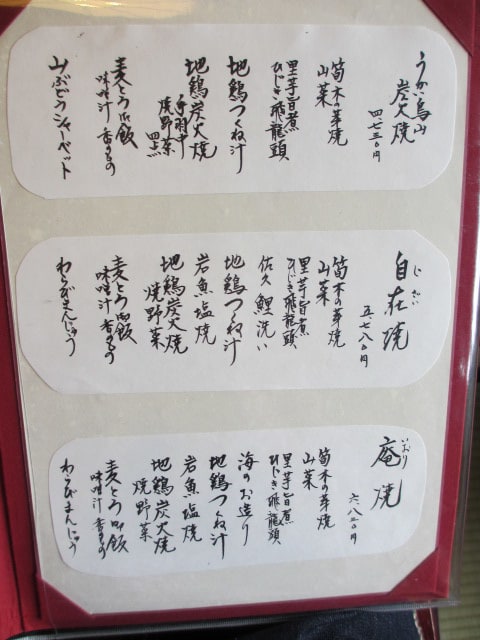 うかい鳥山
炭火焼
四、七三〇円
筍木の芽焼
山菜
里芋旨煮
ひじき飛龍頭
地鶏つくね汁
地鶏炭火焼
手羽
焼野菜
四点
麦とろ御飯
味噌汁 香のもの
山ぶどうシャーベット
じざい
自在焼
五、七八〇円
筍木の芽焼
山菜
里芋旨煮
ひじき飛龍頭
佐久鯉洗い
地鶏つくね汁
岩魚塩焼
地鶏炭火焼
焼野菜
麦とろ御飯
味噌汁 香のもの
わらびまんじゅう
いおり
庵焼
六、八二〇円
筍木の芽焼
山菜
里芋旨煮
ひじき飛龍頭
海のお造り
地鶏つくね汁
岩魚塩焼
地鶏炭火焼
焼野菜
麦とろ御飯
味噌汁 香のもの
わらびまんじゅう